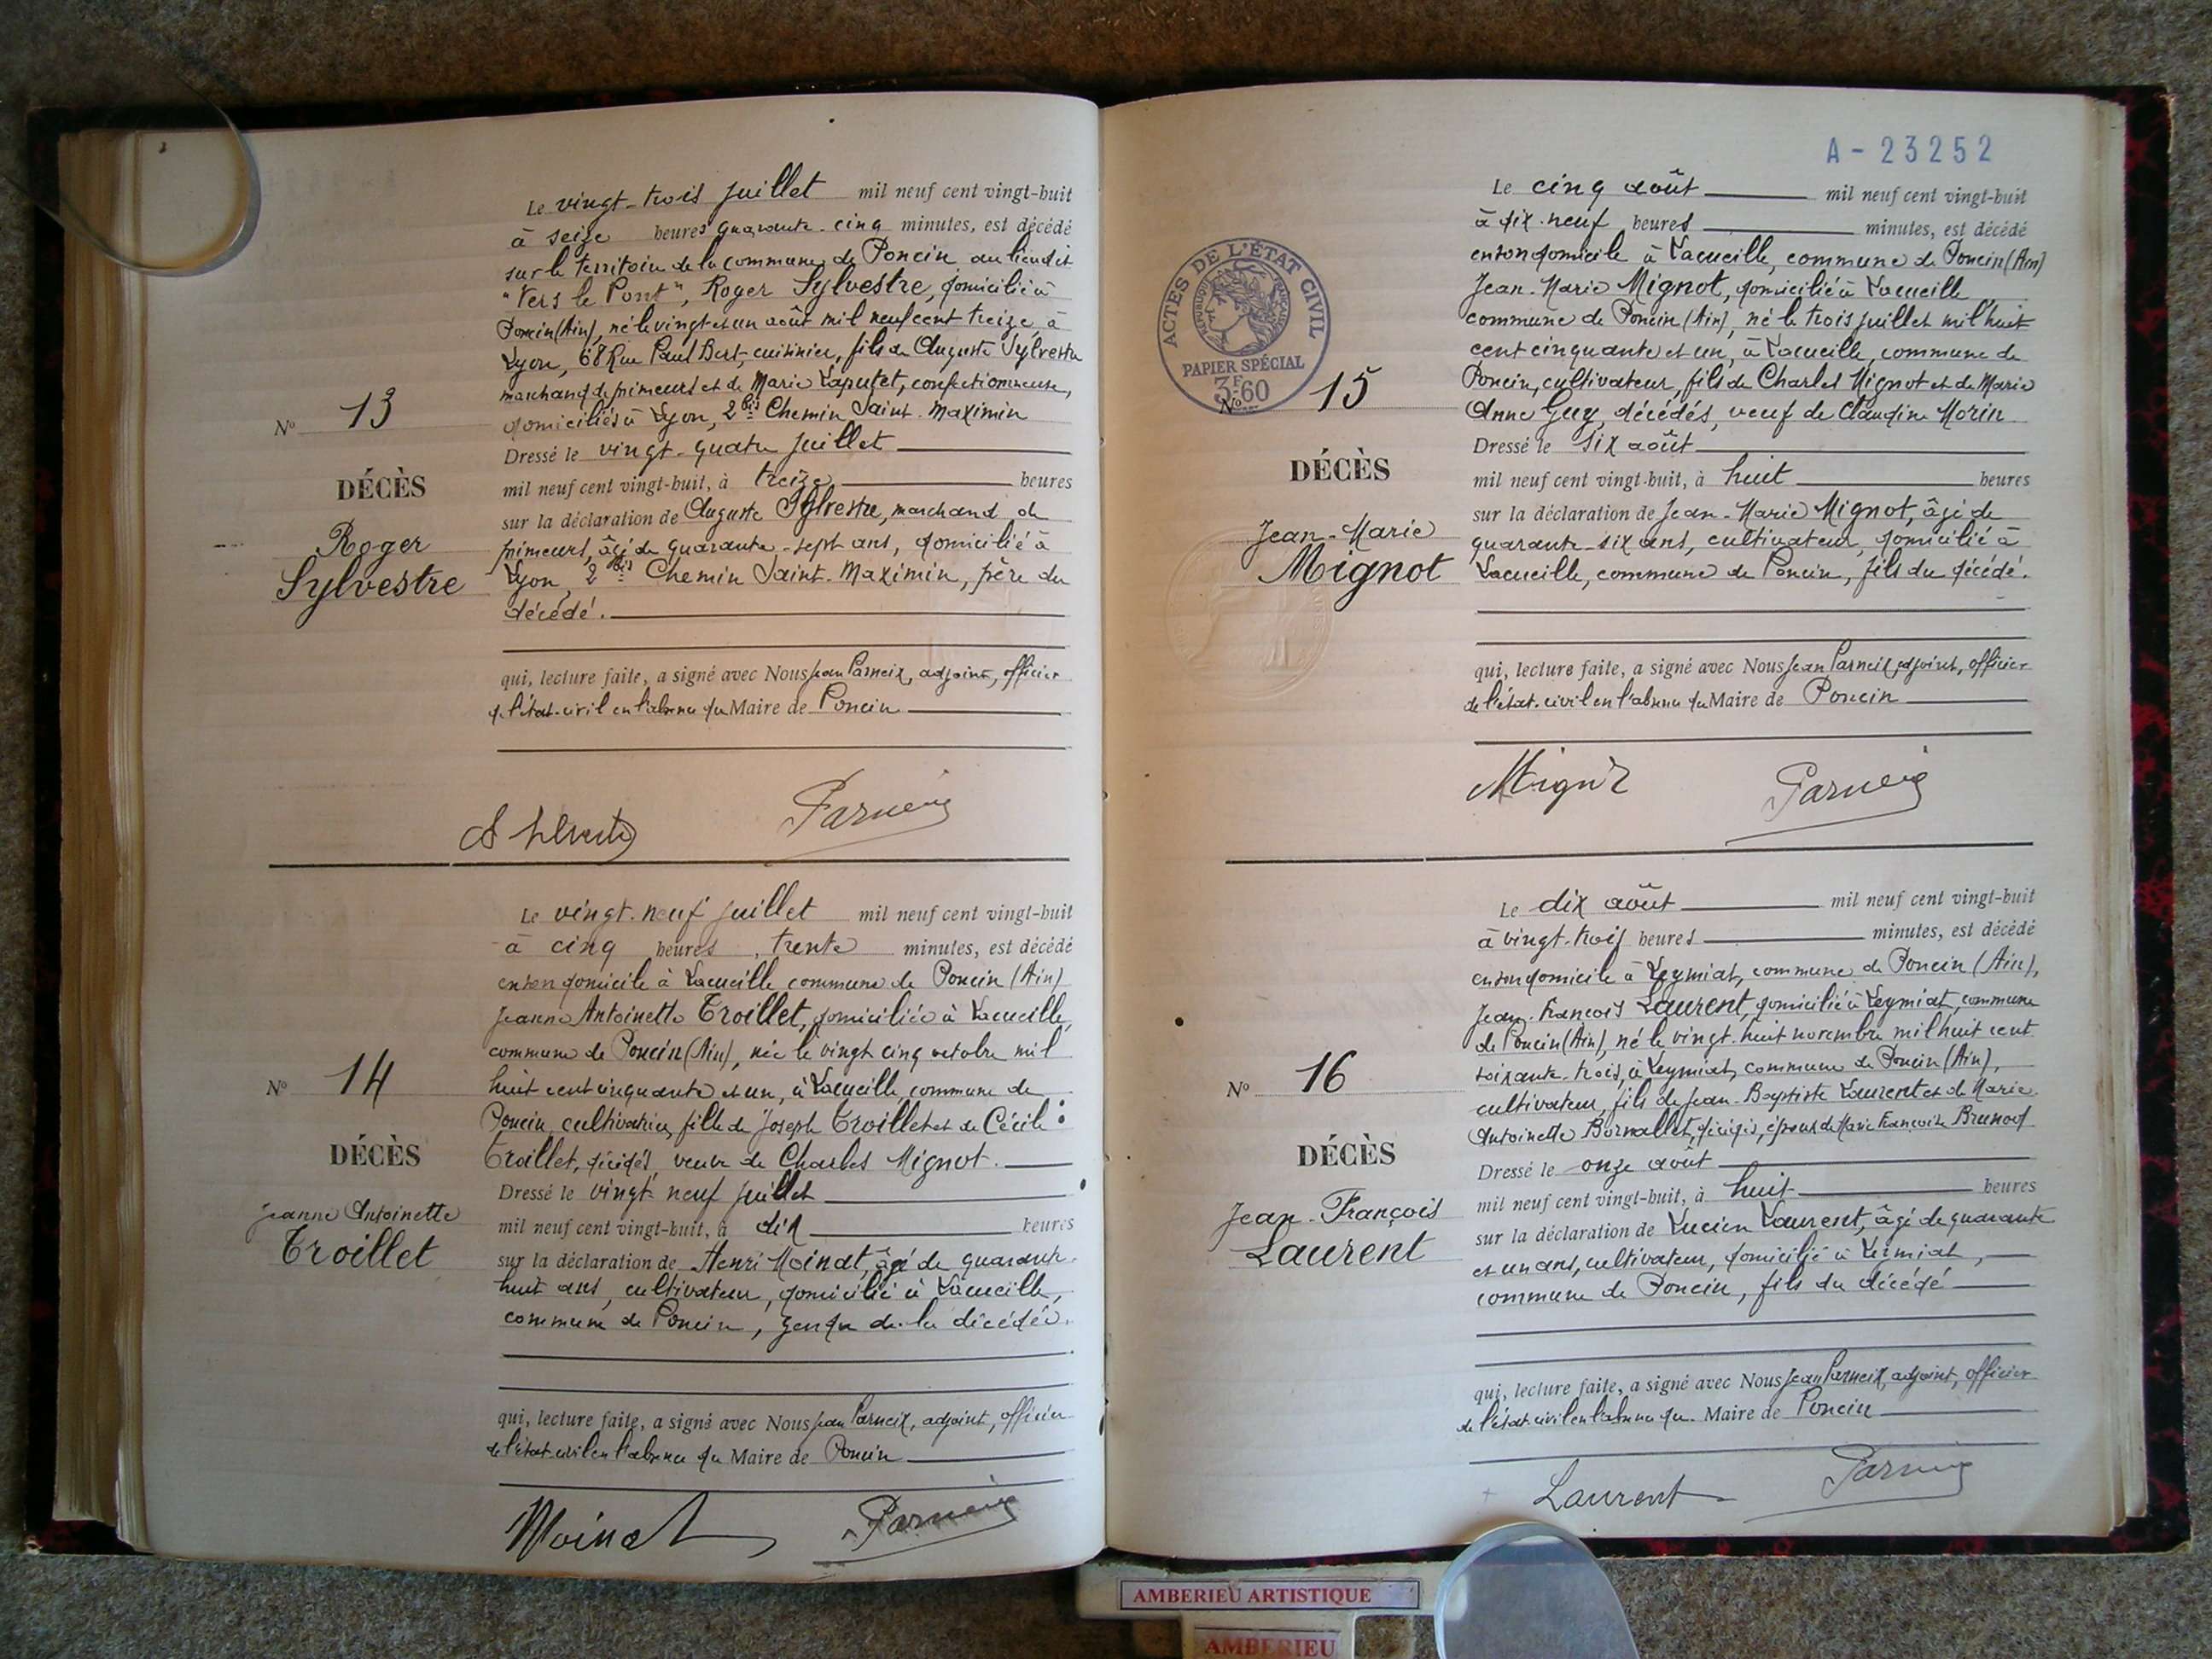 Le vingt-trois juillet mil neuf cent vingt-huit
à seize heures quarante-cinq minutes, est décédé
sur le territoire de la commune de Poncin au lieu dit
"Vers le Pont", Roger Sylvestre, domicilié à
Poncin (Ain), né le vingt et un août mil neuf cent treize, à
Lyon, 68 Rue Paul Bert, cuisinier, fils de Auguste Sylvestre
marchand de primeurs et de Marie Laputet, confectionneuse,
domiciliés à Lyon, 2 bis Chemin Saint-Maximin
Nº 13
DÉCÈS
Roger
Sylvestre
Dressé le vingt-quatre juillet
mil neuf cent vingt-huit, à treize heures
sur la déclaration de Auguste Sylvestre, marchand de
primeurs, âgé de quarante-sept ans, domicilié à
Lyon, 2 bis Chemin Saint-Maximin, père du
décédé.
qui, lecture faite, a signé avec Nous Jean Parneix, adjoint, officier
de l'état-civil en l'absence du Maire de Poncin
Parneix
Le vingt-neuf juillet mil neuf cent vingt-huit
à cinq heures, trente minutes, est décédé
en son domicile à Lacueille commune de Poncin (Ain)
Jeanne Antoinette Troillet, domiciliée à Lacueille,
commune de Poncin (Ain), née le vingt cinq octobre mil
huit cent cinquante et un, à Lacueille, commune de
Poncin, cultivatrice, fille de Joseph Troillet et de Cécile
Troillet, décédés, veuve de Charles Mignot.
Nº 14
DÉCÈS
Jeanne Antoinette
Troillet
Dressé le vingt-neuf juillet
mil neuf cent vingt-huit, à dix heures
sur la déclaration de Henri Moinat, âgé de quarante-
huit ans, cultivateur, domicilié à Lacueille,
commune de Poncin, gendre de la décédée.
qui, lecture faite, a signé avec Nous Jean Parneix, adjoint, officier
de l'état-civil en l'absence du Maire de Poncin
Moinat Parneix
A-23252
ACTES DE L'ÉTAT CIVIL
RÉPUBLIQUE FRANÇAISE
PAPIER SPÉCIAL
3F60
Le cinq août mil neuf cent vingt-huit
à dix-neuf heures minutes, est décédé
en son domicile à Lacueille, commune de Poncin (Ain)
Jean-Marie Mignot, domicilié à Lacueille
commune de Poncin (Ain), né le trois juillet mil huit
cent cinquante et un, à Lacueille, commune de
Poncin, cultivateur, fils de Charles Mignot et de Marie
Anne Guy, décédés, veuf de Claudine Morin
Nº 15
DÉCÈS
Jean-Marie
Mignot
Dressé le six août
mil neuf cent vingt-huit, à huit heures
sur la déclaration de Jean-Marie Mignot, âgé de
quarante-six ans, cultivateur, domicilié à
Lacueille, commune de Poncin, fils du décédé.
qui, lecture faite, a signé avec Nous Jean Parneix, adjoint, officier
de l'état-civil en l'absence du Maire de Poncin
Mignot Parneix
Le dix août mil neuf cent vingt-huit
à vingt-trois heures minutes, est décédé
en son domicile à Leymiat, commune de Poncin (Ain),
Jean-François Laurent, domicilié à Leymiat, commune
de Poncin (Ain), né le vingt-huit novembre mil huit cent
soixante-trois, à Leymiat, commune de Poncin (Ain),
cultivateur, fils de Jean-Baptiste Laurent et de Marie
Antoinette Bornallet, décédés, époux de Marie Françoise Brunod
Nº 16
DÉCÈS
Jean-François
Laurent
Dressé le onze août
mil neuf cent vingt-huit, à huit heures
sur la déclaration de Lucien Laurent, âgé de quarante
et un ans, cultivateur, domicilié à Leymiat,
commune de Poncin, fils du décédé
qui, lecture faite, a signé avec Nous Jean Parneix, adjoint, officier
de l'état-civil en l'absence du Maire de Poncin
Laurent Parneix
AMBERIEU ARTISTIQUE
AMBERIEU